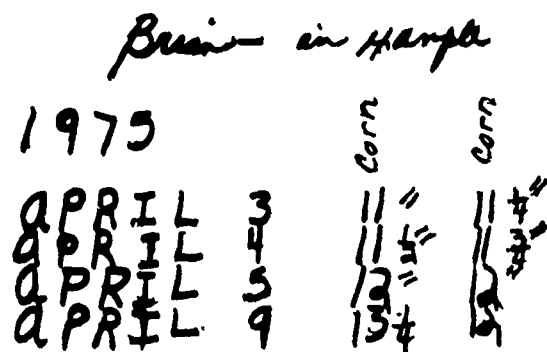 Brian in Hample
1975 Corn Corn
APRIL 3 11" 11 1/4"
APRIL 4 11 1/2" 11 3/4"
APRIL 5 12" 12
APRIL 9 13 1/4